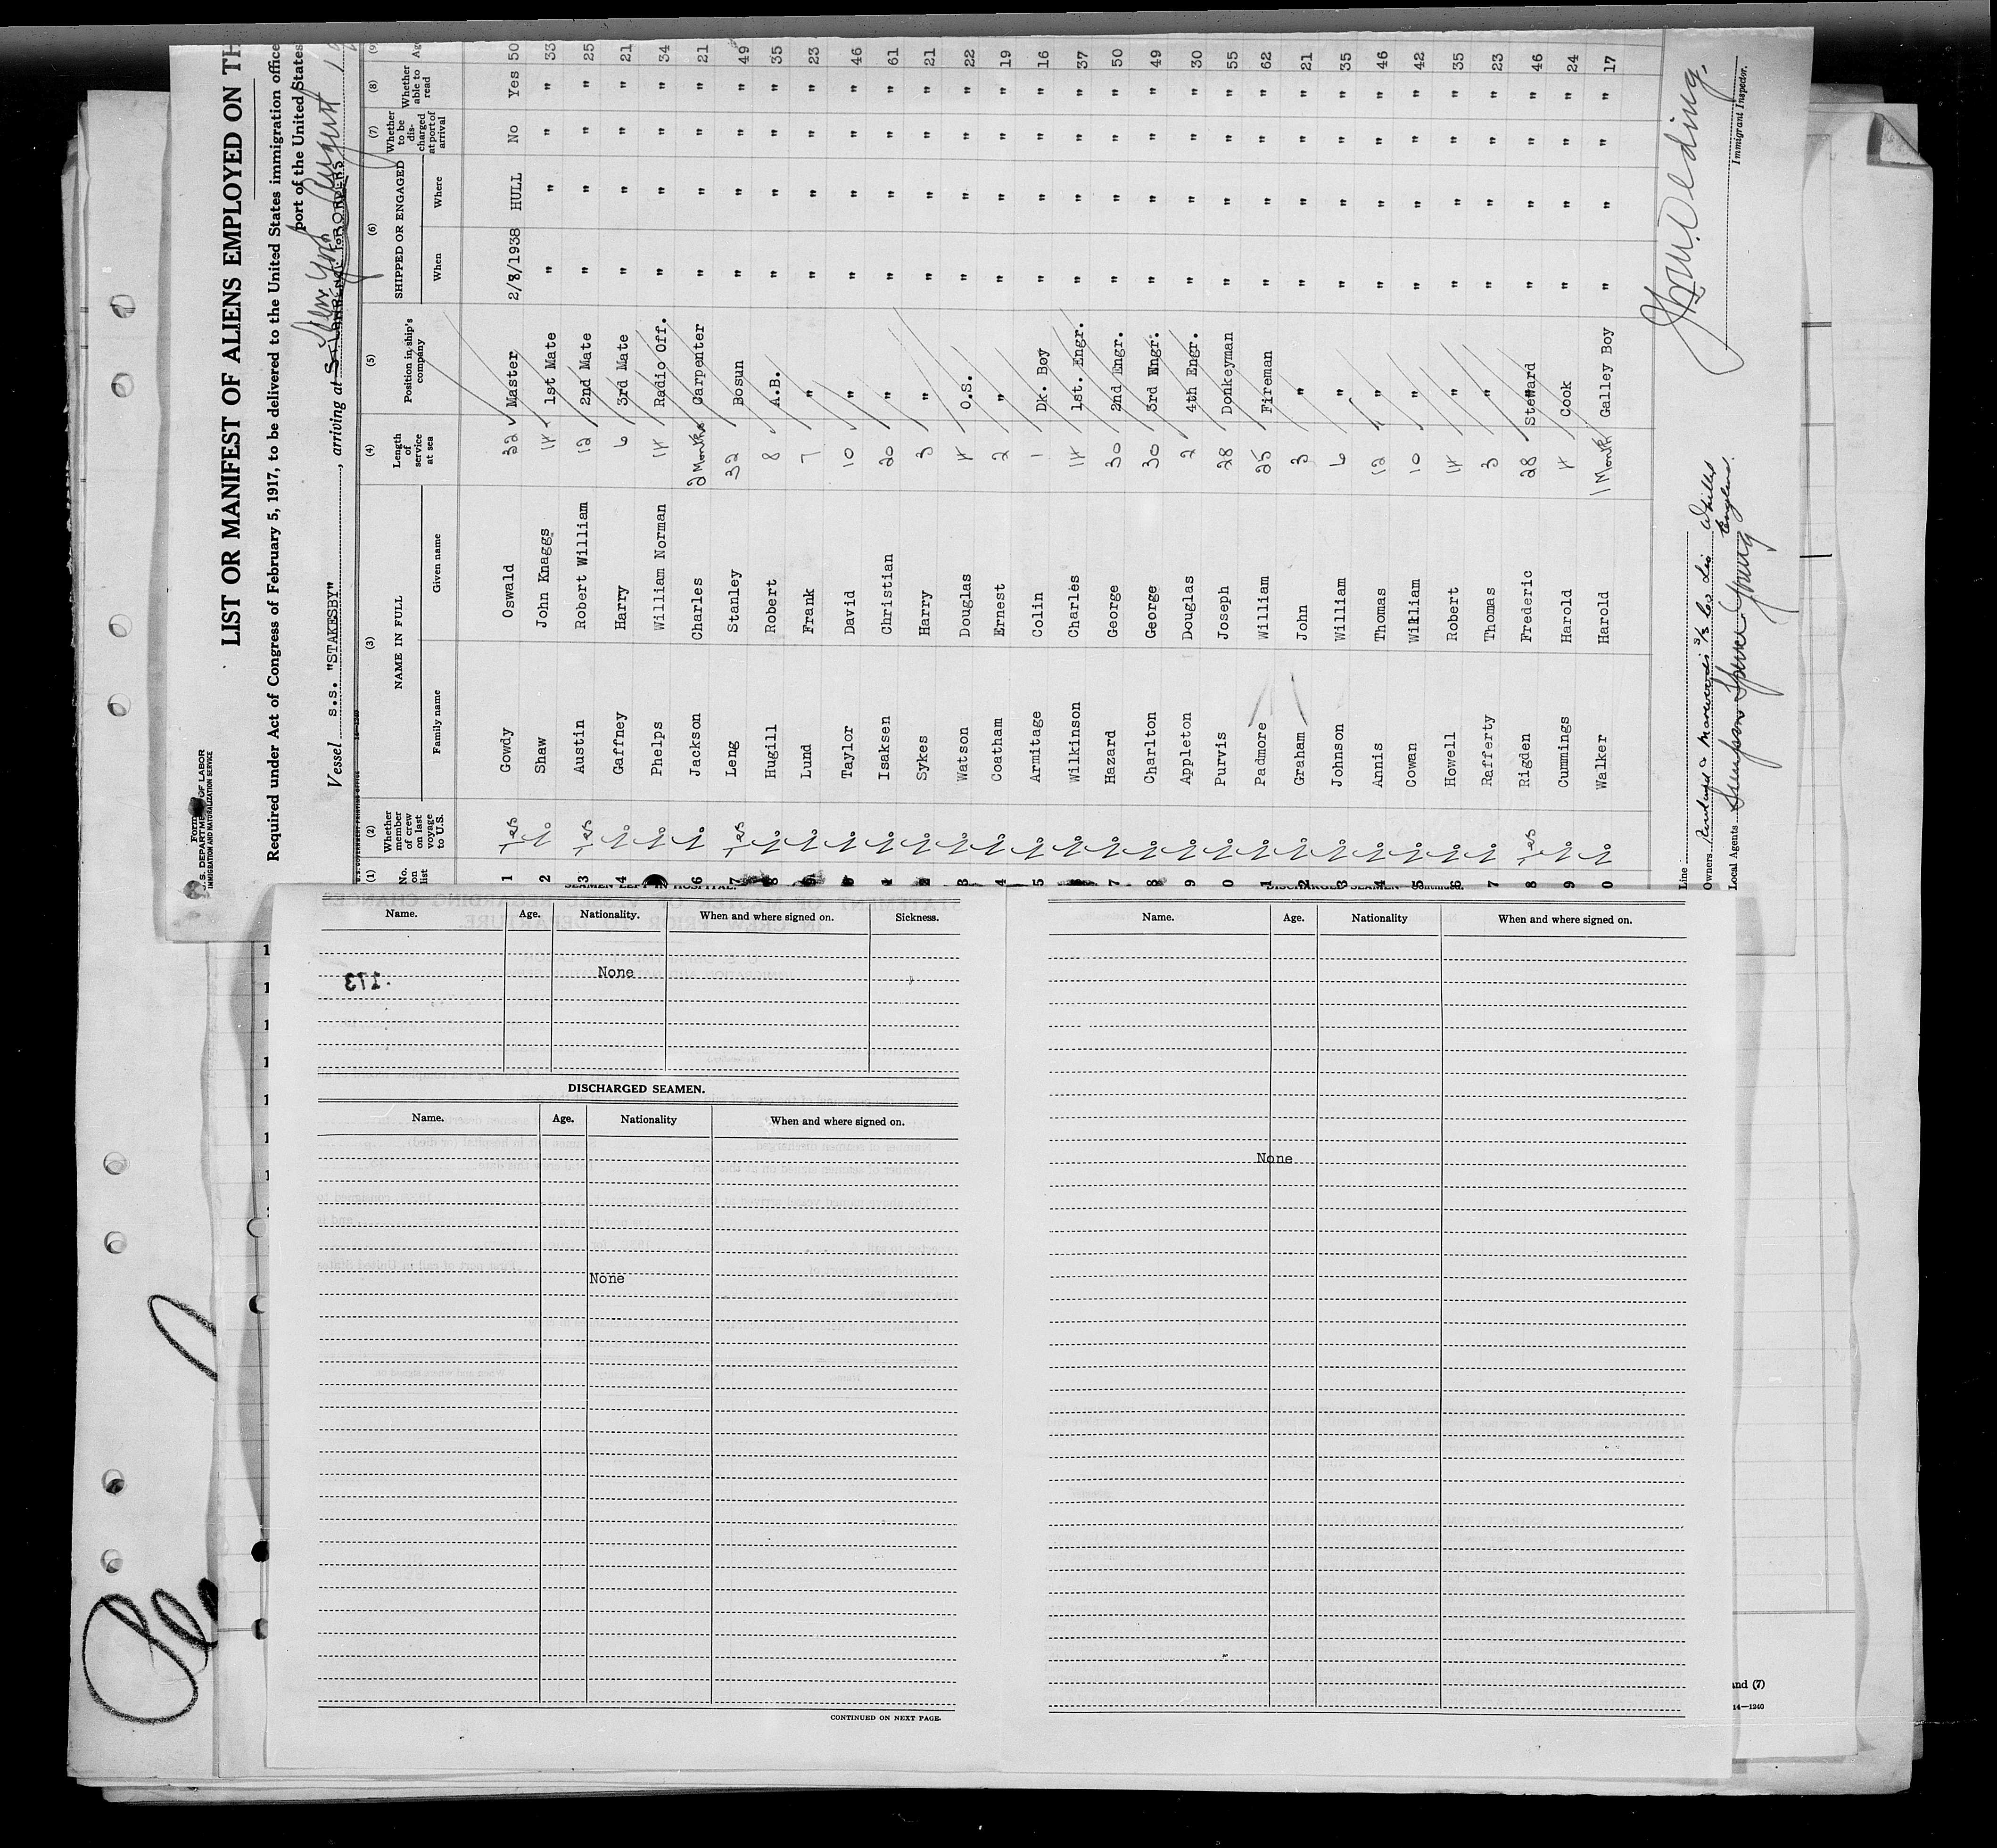 Form
U.S. DEPARTMENT OF LABOR
IMMIGRATION AND NATURALIZATION SERVICE
LIST OR MANIFEST OF ALIENS EMPLOYED ON TH
Required under Act of Congress of February 5, 1917, to be delivered to the United States immigration office
port of the United States
Vessel s.s. "STAKESBY", arriving at New York August 1
(1) (2) (3) (4) (5) (6) (7) (8) (9)
No. on list Whether member of crew on last voyage to U.S. NAME IN FULL Family name Given name Length of service at sea Position in ship's company SHIPPED OR ENGAGED When Where Whether to be discharged at port of arrival Whether able to read Ag
1 Yes Gowdy Oswald 32 Master 2/8/1938 HULL No Yes 50
2 No Shaw John Knaggs 14 1st Mate " " " " 33
3 Yes Austin Robert William 12 2nd Mate " " " " 25
4 No Gaffney Harry 6 3rd Mate " " " " 21
No Phelps William Norman 14 Radio Off. " " " " 34
6 No Jackson Charles 2 Months Carpenter " " " " 21
7 Yes Leng Stanley 32 Bosun " " " " 49
8 No Hugill Robert 8 A.B. " " " " 35
9 No Lund Frank 7 " " " " " 23
0 No Taylor David 10 " " " " " 46
1 No Isaksen Christian 20 " " " " " 61
2 No Sykes Harry 3 " " " " " 21
3 No Watson Douglas 4 O.S. " " " " 22
4 No Coatham Ernest 2 " " " " " 19
5 No Armitage Colin 1 Dk. Boy " " " " 16
6 No Wilkinson Charles 14 1st. Engr. " " " " 37
7 No Hazard George 30 2nd Engr. " " " " 50
8 No Charlton George 30 3rd Engr. " " " " 49
9 No Appleton Douglas 2 4th Engr. " " " " 30
0 No Purvis Joseph 28 Donkeyman " " " " 55
1 No Padmore William 25 Fireman " " " " 62
2 No Graham John 3 " " " " " 21
3 No Johnson William 6 " " " " " 35
4 No Annis Thomas 12 " " " " " 46
5 No Cowan William 10 " " " " " 42
6 No Howell Robert 14 " " " " " 35
7 No Rafferty Thomas 3 " " " " " 23
8 Yes Rigden Frederic 28 Steward " " " " 46
9 No Cummings Harold 4 Cook " " " " 24
0 No Walker Harold 1 Month Galley Boy " " " " 17
Line
Owners
Local Agents
Immigrant Inspector.
SEAMEN LEFT IN HOSPITAL.
Name. Age. Nationality. When and where signed on. Sickness.
None
173
DISCHARGED SEAMEN.
Name. Age. Nationality When and where signed on.
None
CONTINUED ON NEXT PAGE.
DISCHARGED SEAMEN—Continued.
Name. Age. Nationality When and where signed on.
None
and (7)
14—1240